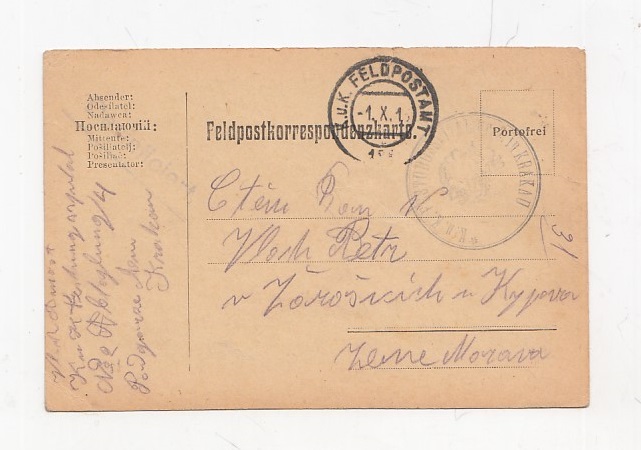 Absender:
Odesílatel:
Nadawca:
Посилаючий:
Mittente:
Pošiljatelj:
Pošiljač:
Presentator:
K.u.K. FELDPOSTAMT
-1.X.1
Feldpostkorrespondenzkarte.
Portofrei
KRAKAU
Ctěný Pan
Vlach Petr
v Žarošicích u Kyjova
Zeme Morava
31
No 2 Abteilung 4
Podgorze
Krakau